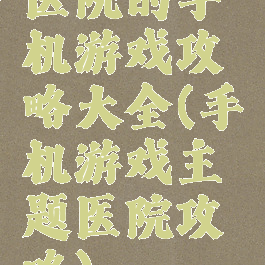 医院的手
机游戏攻
略大全(手
机游戏主
题医院攻
略)